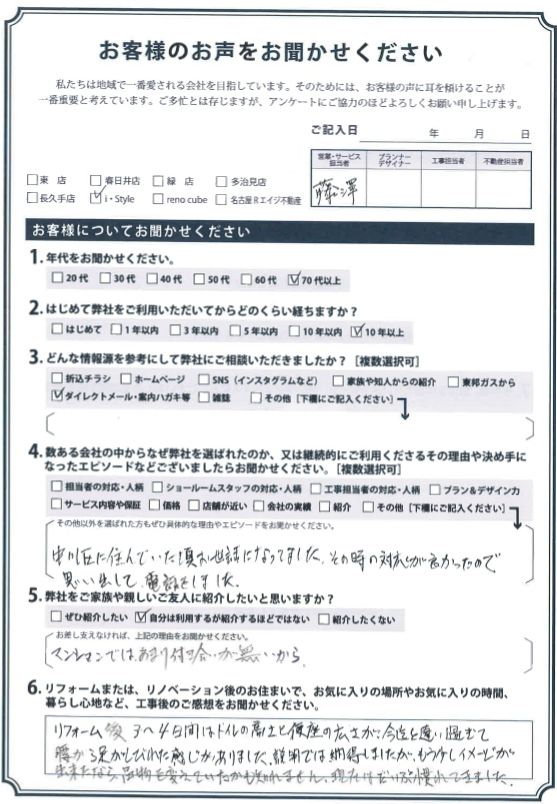 お客様のお声をお聞かせください
私たちは地域で一番愛される会社を目指しています。そのためには、お客様の声に耳を傾けることが
一番重要と考えています。ご多忙とは存じますが、アンケートにご協力のほどよろしくお願い申し上げます。
ご記入日 年 月 日
営業・サービス担当者 プランナーデザイナー 工事担当者 不動産担当者
藤澤
□東 店 □春日井店 □緑 店 □多治見店
□長久手店 ☑i・Style □reno cube □名古屋Rエイジ不動産
お客様についてお聞かせください
1. 年代をお聞かせください。
□20代 □30代 □40代 □50代 □60代 ☑70代以上
2. はじめて弊社をご利用いただいてからどのくらい経ちますか？
□はじめて □1年以内 □3年以内 □5年以内 □10年以内 ☑10年以上
3. どんな情報源を参考にして弊社にご相談いただきましたか？［複数選択可］
□折込チラシ □ホームページ □SNS（インスタグラムなど） □家族や知人からの紹介 □東邦ガスから
☑ダイレクトメール・案内ハガキ等 □雑誌 □その他［下欄にご記入ください］
4. 数ある会社の中からなぜ弊社を選ばれたのか、又は継続的にご利用くださるその理由や決め手に
なったエピソードなどございましたらお聞かせください。［複数選択可］
□担当者の対応・人柄 □ショールームスタッフの対応・人柄 □工事担当者の対応・人柄 □プラン＆デザイン力
□サービス内容や保証 □価格 □店舗が近い □会社の実績 □紹介 □その他［下欄にご記入ください］
その他以外を選ばれた方もぜひ具体的な理由やエピソードをお聞かせください。
中川区に住んでいた頃お世話になってました。その時の対応が良かったので
思い出して電話をしました。
5. 弊社をご家族や親しいご友人に紹介したいと思いますか？
□ぜひ紹介したい ☑自分は利用するが紹介するほどではない □紹介したくない
お差し支えなければ、上記の理由をお聞かせください。
マンションでは、あまり付き合いが無いから。
6. リフォームまたは、リノベーション後のお住まいで、お気に入りの場所やお気に入りの時間、
暮らし心地など、工事後のご感想をお聞かせください。
リフォーム後 3〜4日間はトイレの高さと便座の広さが、今迄と違い過ぎて
腰から足がしびれた感じがありました。説明では納得しましたが、もう少しイメージが
出来たなら品物を変えていたかも知れません。現在はだいぶ慣れてきました。